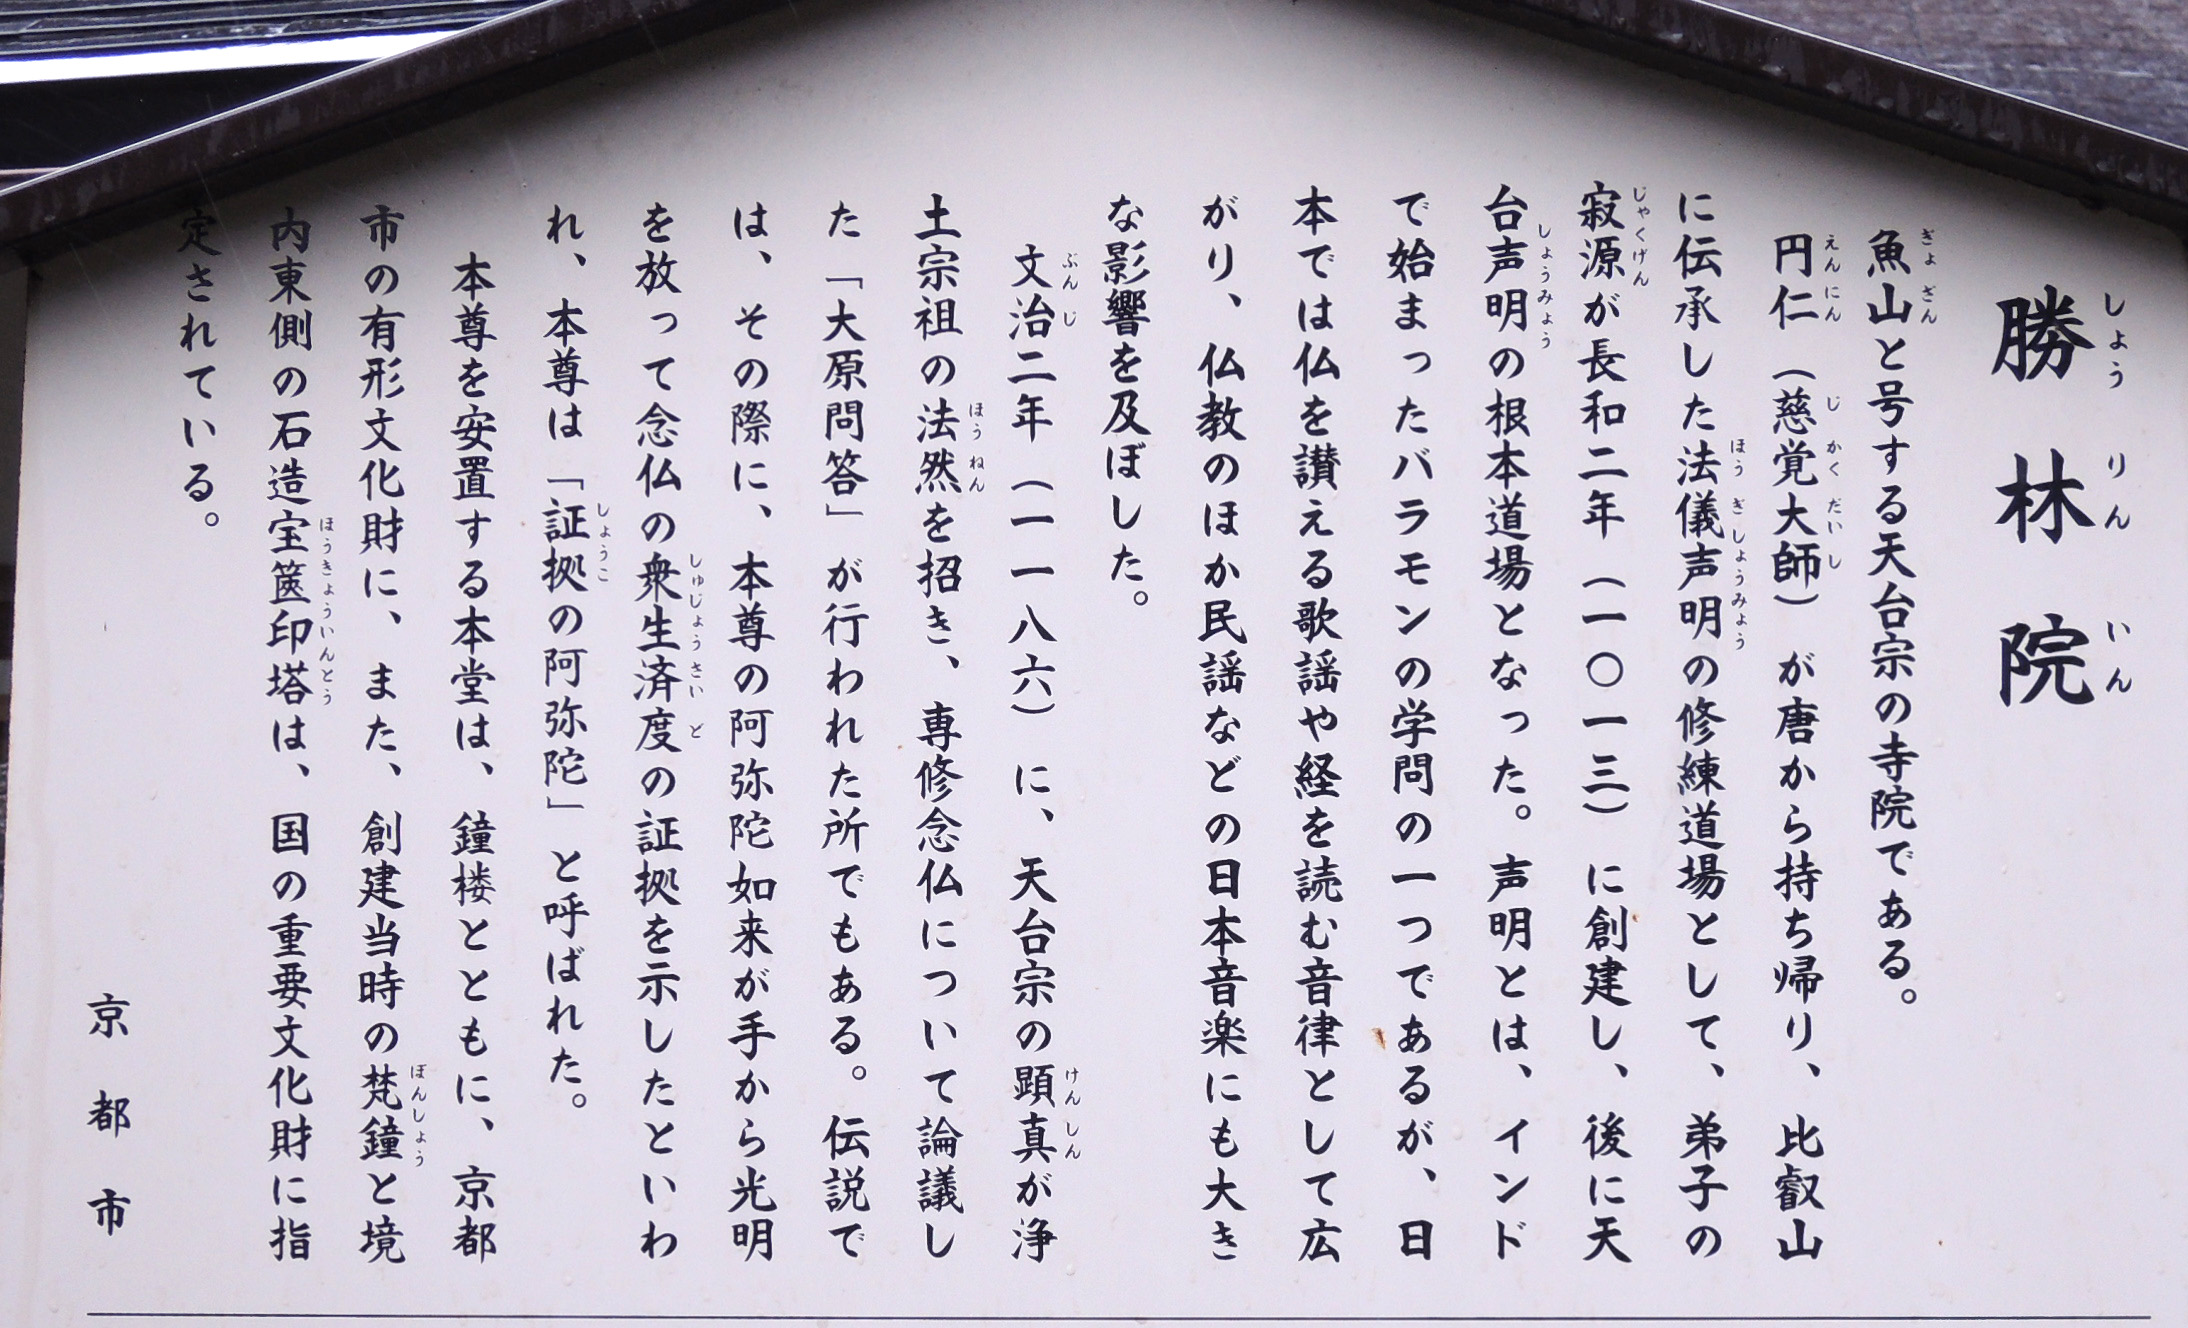 勝林院
しょうりんいん
魚山と号する天台宗の寺院である。
ぎょざん
円仁（慈覚大師）が唐から持ち帰り、比叡山
えんにん じかくだいし
に伝承した法儀声明の修練道場として、弟子の
ほうぎしょうみょう
寂源が長和二年（一〇一三）に創建し、後に天
じゃくげん
台声明の根本道場となった。声明とは、インド
しょうみょう
で始まったバラモンの学問の一つであるが、日
本では仏を讃える歌謡や経を読む音律として広
がり、仏教のほか民謡などの日本音楽にも大き
な影響を及ぼした。
文治二年（一一八六）に、天台宗の顕真が浄
ぶんじ けんしん
土宗祖の法然を招き、専修念仏について論議し
ほうねん
た「大原問答」が行われた所でもある。伝説で
は、その際に、本尊の阿弥陀如来が手から光明
を放って念仏の衆生済度の証拠を示したといわ
しゅじょうさいど
れ、本尊は「証拠の阿弥陀」と呼ばれた。
しょうこ
本尊を安置する本堂は、鐘楼とともに、京都
市の有形文化財に、また、創建当時の梵鐘と境
ぼんしょう
内東側の石造宝篋印塔は、国の重要文化財に指
ほうきょういんとう
定されている。
京都市